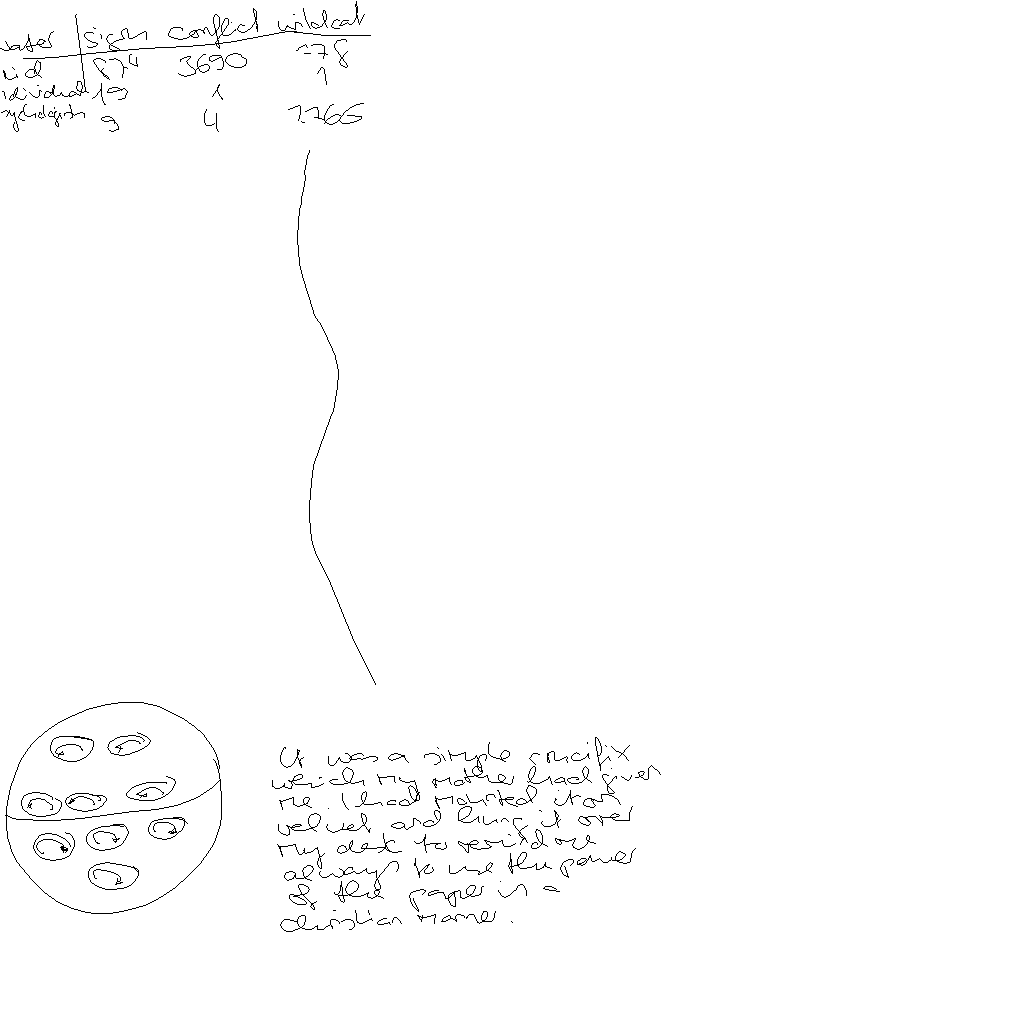 sign conflict wildcat
3690 78
19 1 1
9 4
It was a simple crucifix
which my mother had given
me. I had mounted it on
velvet and hung it over
my desk to remind me
always to use the power
of the paper in a
christian manner.